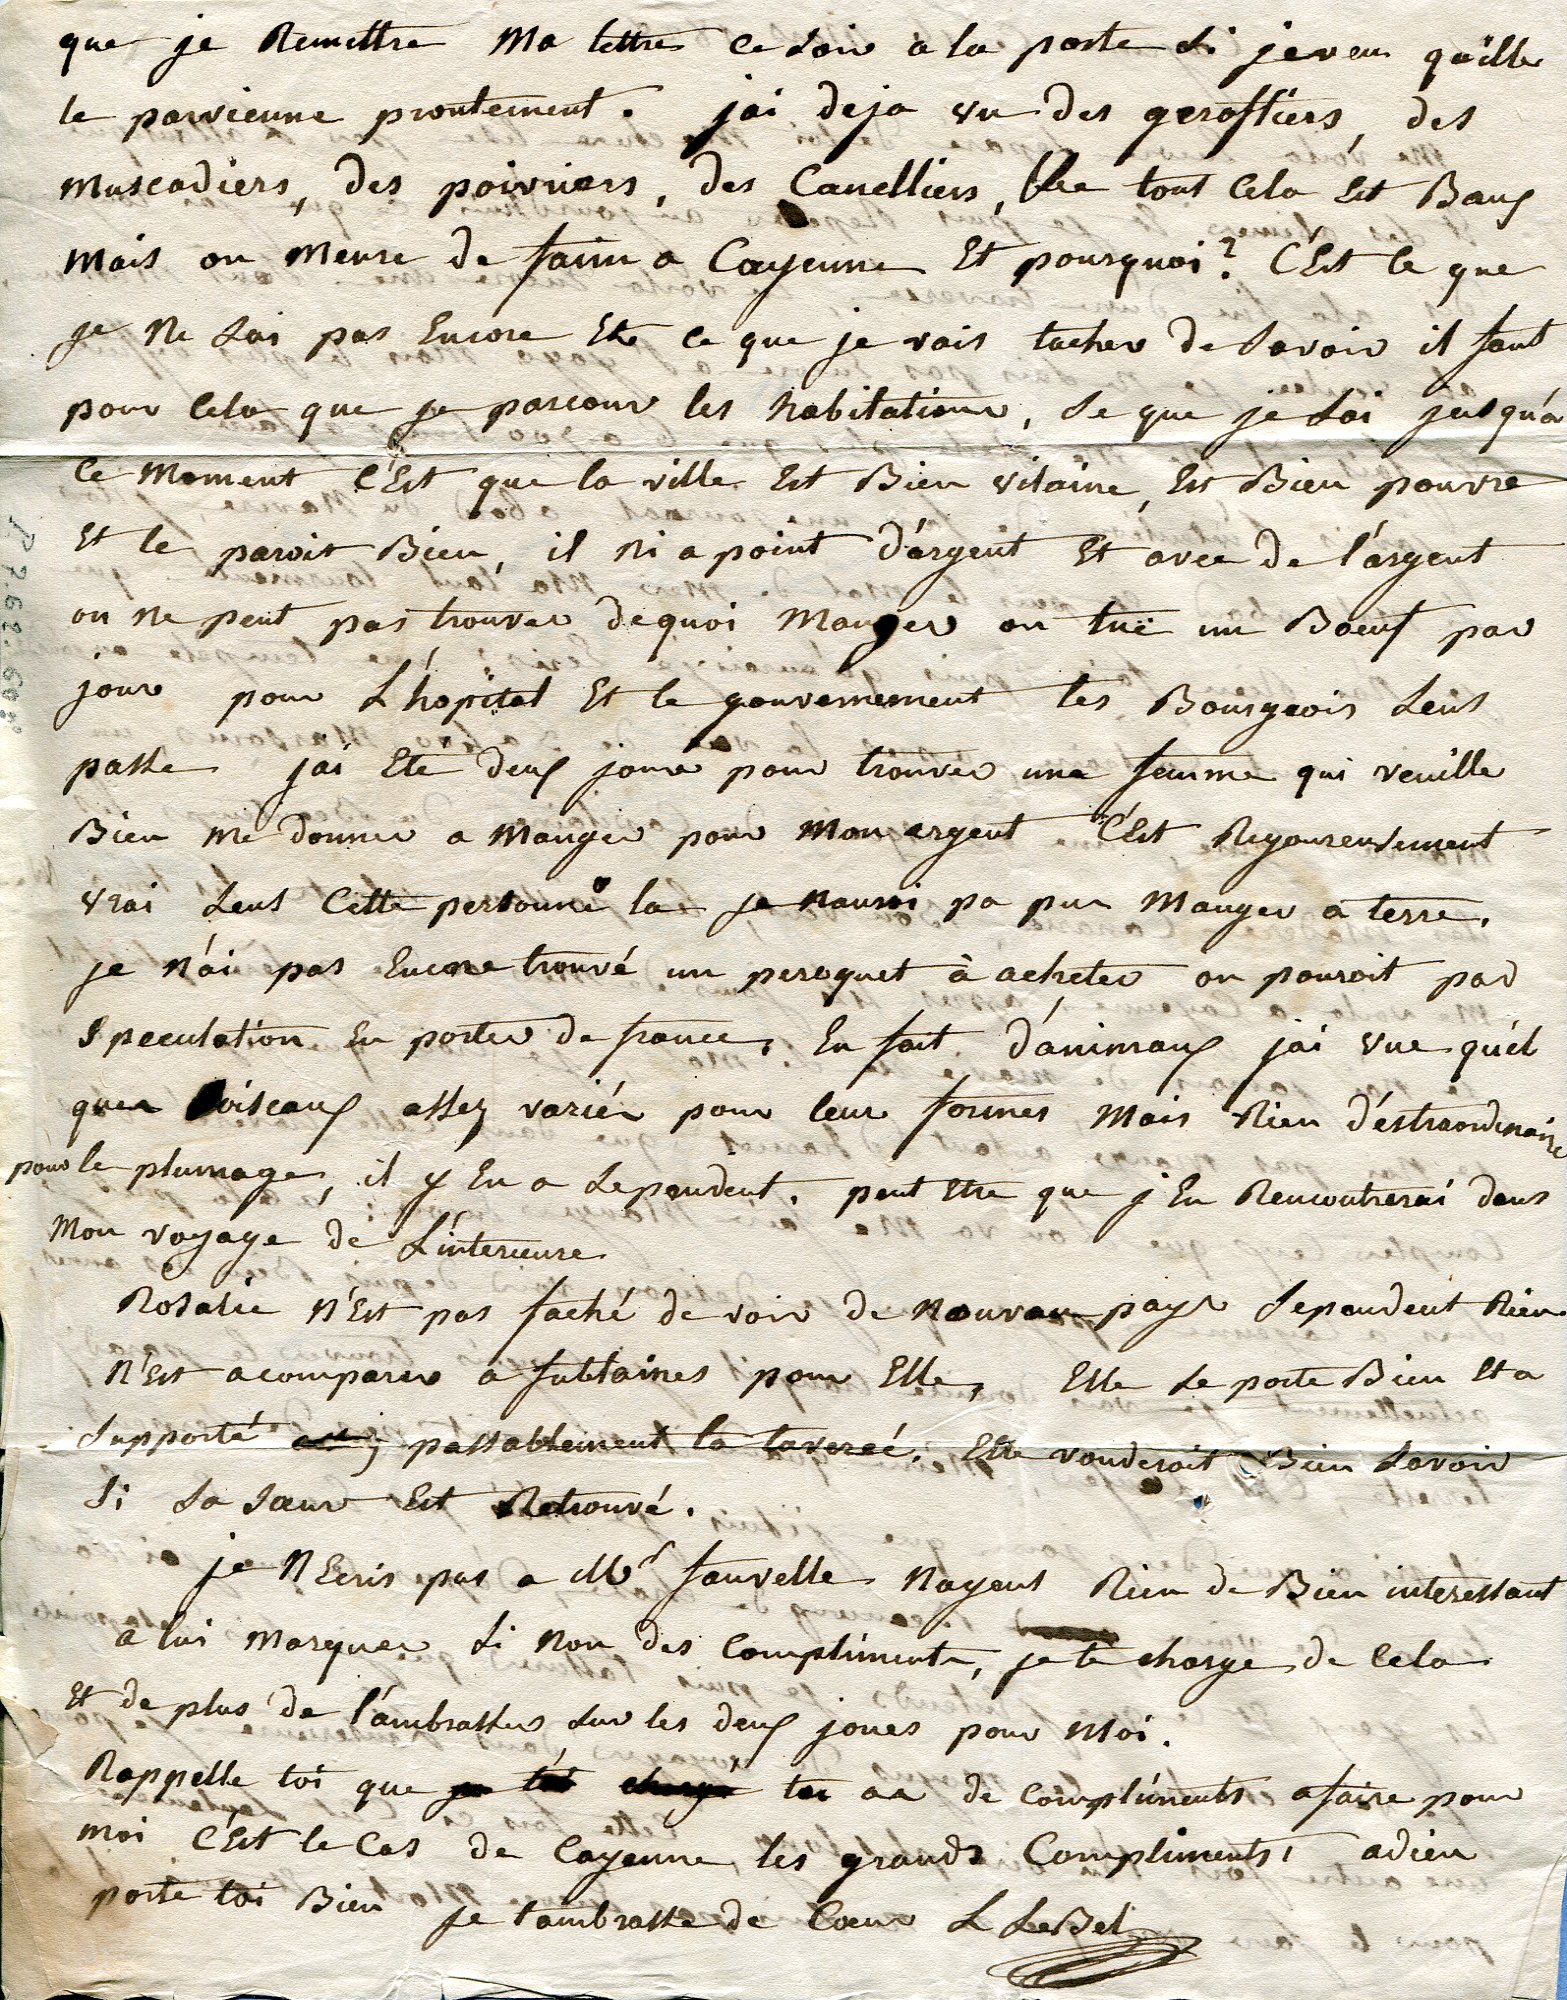 que je Remettre Ma lettre ce soir a la poste si je veu qu'ille
te parvienne prontement. jai deja vu des gerofliers, des
Muscadiers, des poivriers, des Canelliers, &c tout Cela Est Baux
Mais on Meure de faim a Cayenne Et pourquoi? C'Est ce que
je Ne Sai pas Encore Et ce que je vais tacher de Savoir il faut
pour Cela que je parcour les habitations, Se que je Sai jusqu'a
Ce Moment C'Est que la ville Est Bien vilaine, Est Bien pouvre
Et le paroit Bien, il Ni a point d'argent Et avec de l'argent
on Ne peut pas trouver de quoi Manger on tuë un Boeuf par
jour pour L'hopital Et le gouvernement les Bourgeois Sens
passe jai Ete deux jours pour trouver une femme qui veuille
Bien Me donner a Manger pour Mon argent C'Est Regoureusement
vrai Sens Cette personne la je Naurai pa pue Manger a terre.
je N'ai pas Encore trouvé un peroquet à acheter on pouroit par
Speculation En porter de france. En fait d'animaux jai vue quel
ques oiseaux assez variés pour leur formes Mais Rien d'estraordinaire
pour le plumage, il y En a Sependent. peut Etre que j'En Rencontrerai dens
Mon voyage de L'interieure
Rosalie N'Est pas faché de voir de Nouvau pays Sependent Rien
N'Est a comparer a fublaines pour Elle, Elle Se porte Bien Et a
Supporté passablement la taversé. Elle vouderoit Bien Savoir
Si Sa Soeur Est Retrouvé.
je N'Ecris pas a Mr fauvelle Nayent Rien de Bien interessant
a lui Marquer Si Non des Compliments, je te charge de Cela
Et de plus de l'ambrasser Sur les deux joues pour Moi.
Rappelle toi que tu aa de Compliments a faire pour
Moi C'Est le Cas de Cayenne les grands Compliments, adieu
porte toi Bien je t'ambrasse de Coeur L LeBel